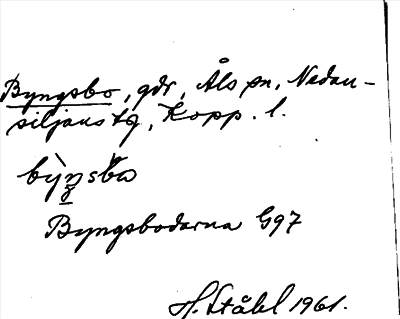 Byngsbo, gdr, Åls sn, Nedan-
siljans tg, Kopp. l.
bỳŋsbo
Byngsbodarna G97
H. Ståhl 1961.